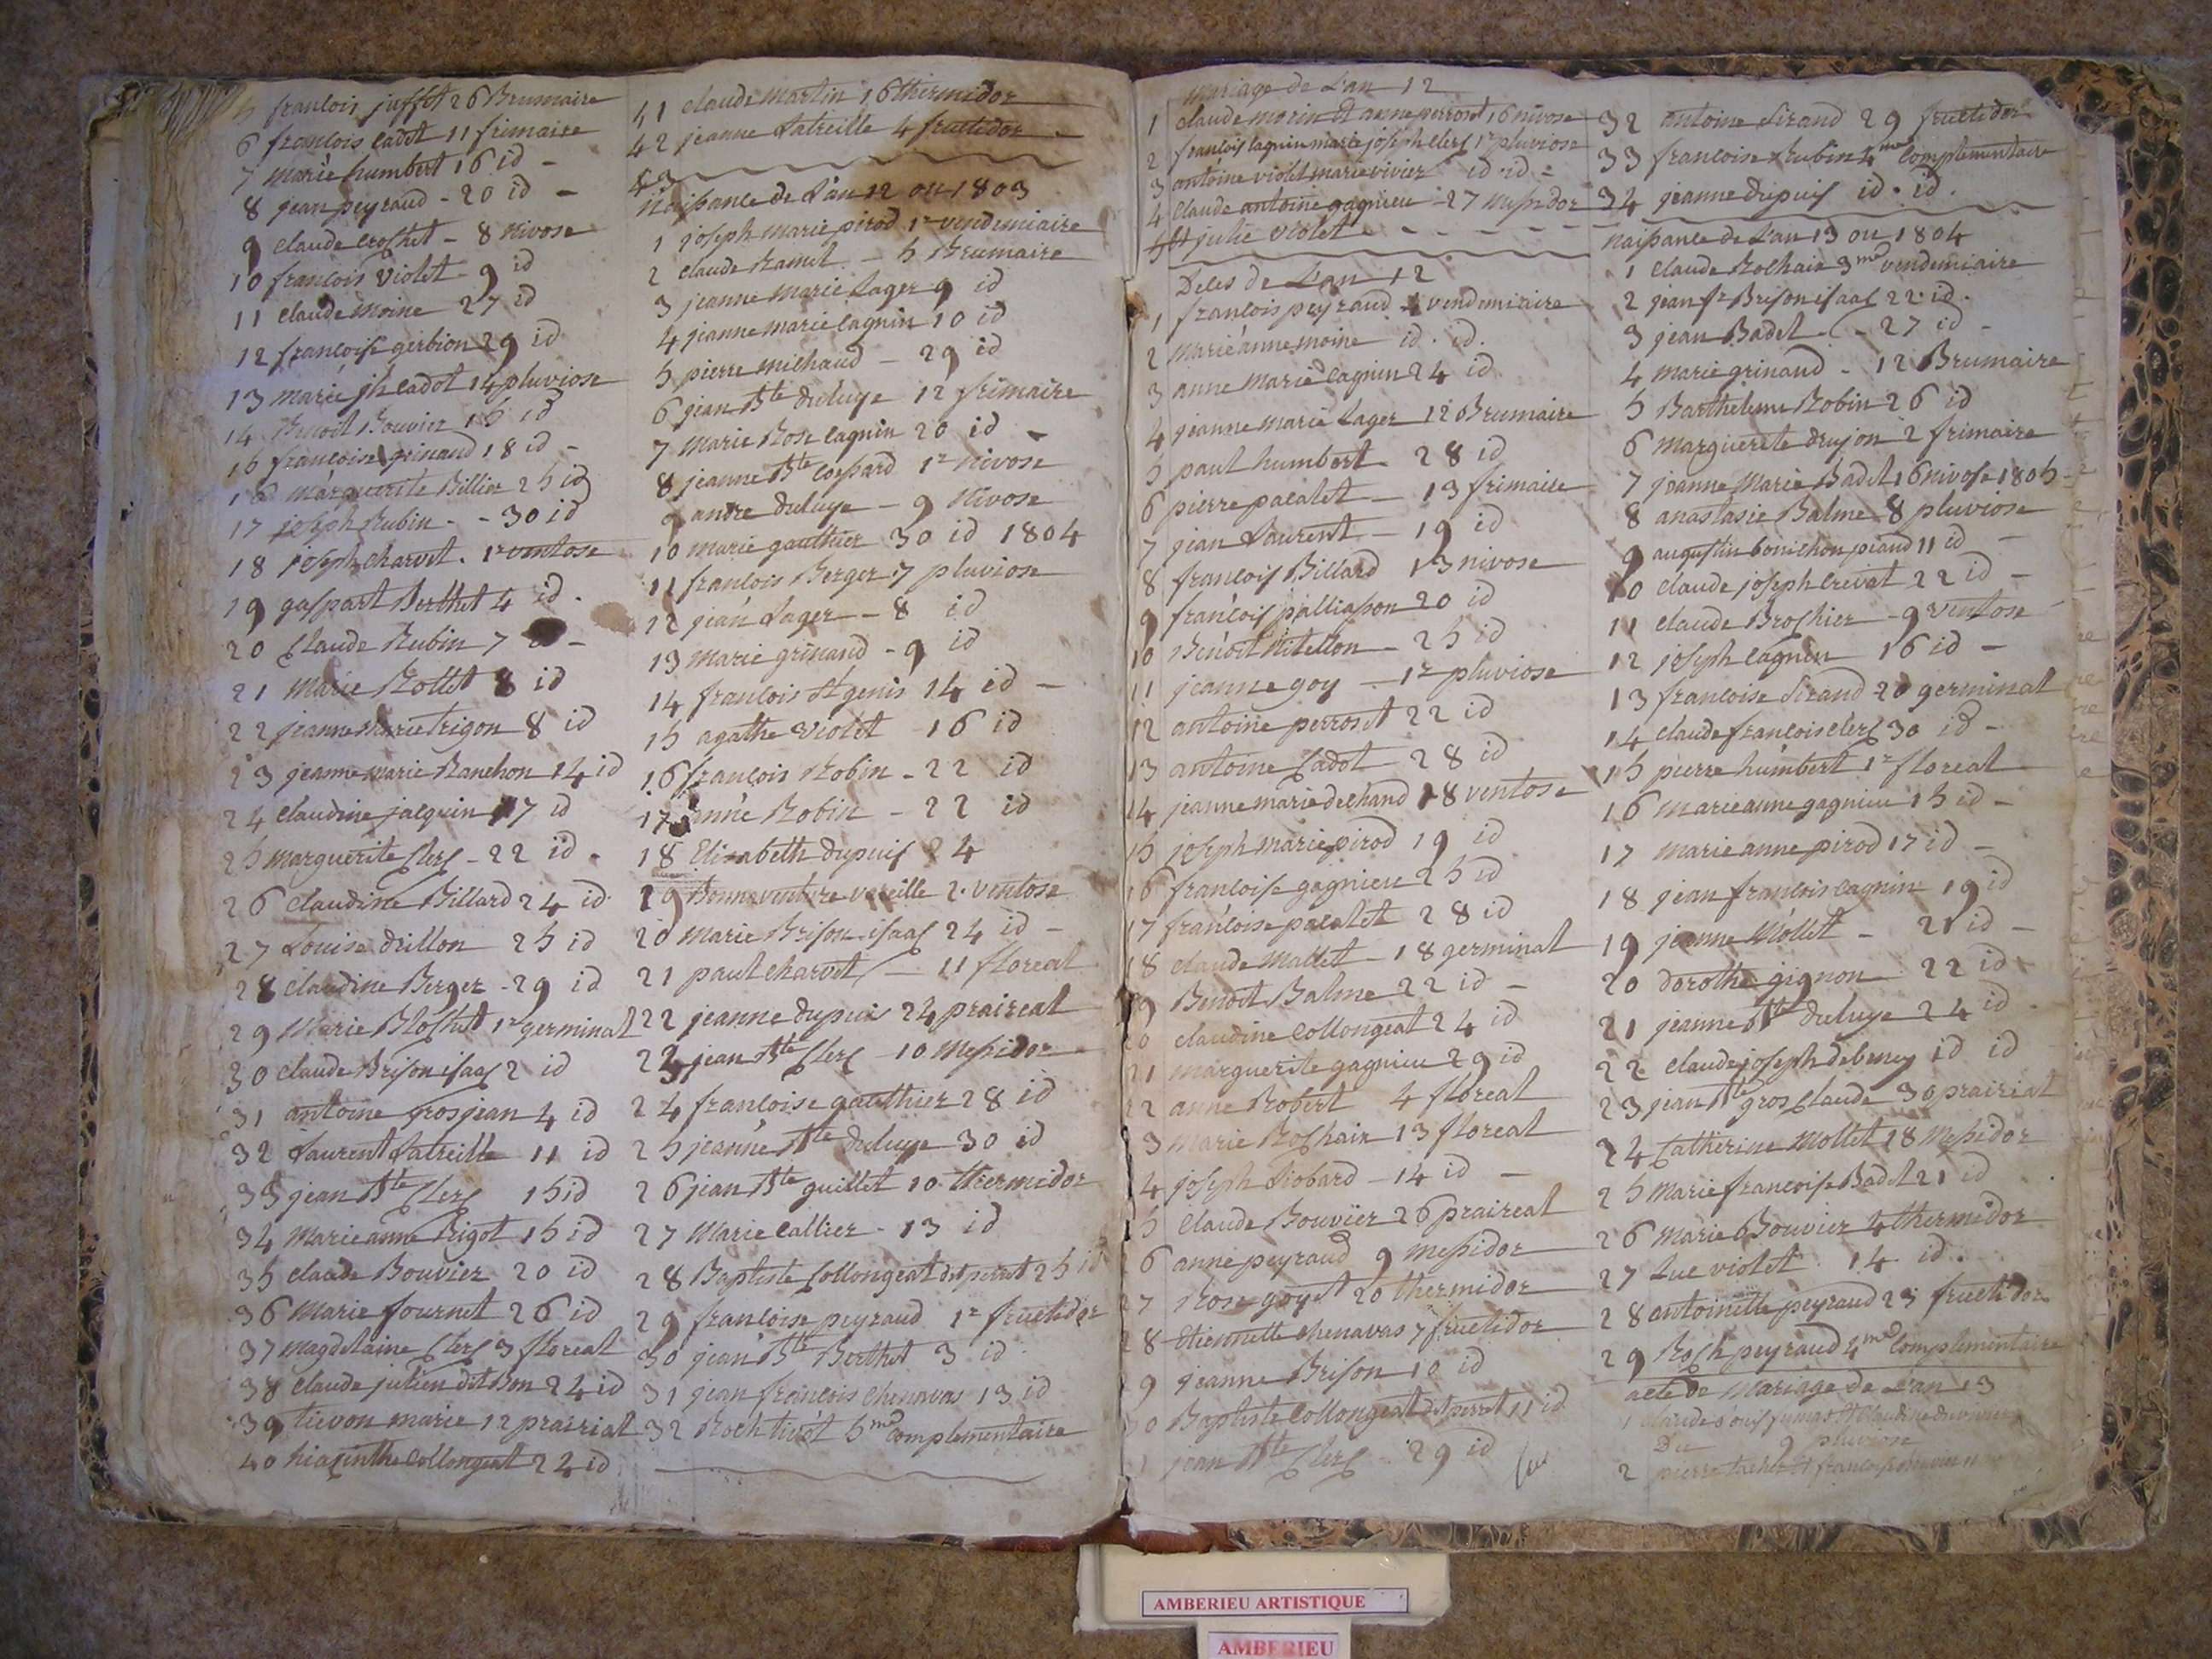 5 francois juffet 26 Brumaire
6 francois Cadot 11 frimaire
7 marie humbert 16 id -
8 jean peyraud - 20 id -
9 Claude Crochet - 8 Nivose
10 francois Violet 9 id
11 Claude Moine 27 id
12 francoise gerbion 29 id
13 marie jh Cadot 14 pluviose
14 Benoit Bouvier 15 id
15 francoise grinand 18 id -
16 marguerite Billier 25 id
17 joseph Rubin - - 30 id
18 joseph charvet . 1r ventose
19 gaspart Berthet 4 id -
20 Claude Rubin 7 -
21 Marie Rollet 8 id
22 jeanne marie trigon 8 id
23 jeanne marie Ranchon 14 id
24 Claudine jacquin 17 id
25 marguerite Clerc - 22 id -
26 claudine Billard 24 id
27 Louise drillon 25 id
28 claudine Berger - 29 id
29 Marie 1r germinal
30 Claude Brison isaac 2 id
31 antoine grosjean 4 id
32 Laurent Latreille 11 id
33 jean Bte Clerc 15 id
34 Marie anne Rigot 15 id
35 Claude Bouvier 20 id
36 Marie fournet 26 id
37 Magdelaine Clerc 3 floreal
38 Claude julien dit Bon 24 id
39 tievon marie 12 prairial
40 hiacinthe Collongeat 22 id
41 Claude Martin 16 thermidor
42 jeanne Latreille 4 fructidor
43
Naissance de L'an 12 ou 1803
1 joseph marie pirod 1r vendemiaire
2 Claude Ramel - 5 Brumaire
3 jeanne marie Lager 9 id
4 jeanne marie Cagnin 10 id
5 pierre michaud - 29 id
6 jean Bte duluye 12 frimaire
7 Marie Rose Cagnin 20 id -
8 jeanne Bte Cossard 1r Nivose
9 andre duluye - 9 Nivose
10 marie gauthier 30 id 1804
11 francois Berger 7 pluviose
12 jean Lager - 8 id
13 Marie grinand - 9 id
14 francois St genis 14 id -
15 agathe Violet 16 id
16 francois Robin - 22 id
17 Robin - 22 id
18 Elisabeth dupuis 24
19 Bonneventure vareille 2 ventose
20 Marie Brison isaac 24 id -
21 paul Charvet - 11 floreal
22 jeanne dupuis 24 praireal
23 jean Bte Clerc - 10 Messidor
24 francoise gauthier 28 id
25 jeanne Bte duluye 30 id
26 jean Bte guillet 10 thermidor
27 Marie Callier - 13 id
28 Baptiste Collongeat dit perret 25 id
29 francoise peyraud 1r fructidor
30 jean Bte Berthet 3 id
31 jean francois Chenavas 13 id
32 Roch tivot 5me complementaire
Mariage de L'an 12
1 Claude morin et anne perroset 16 nivose
2 francois lagnin marie joseph Clerc 1r pluviose
3 antoine violet marie vivier id id -
4 Claude antoine gagnieu 27 messidor
et julie violet
Deces de L'an 12
1 francois peyraud vendemiaire
2 Marie anne moine id . id .
3 anne marie Cagnin 24 id
4 jeanne marie Lager 12 Brumaire
5 paul humbert - 28 id
6 pierre pacalet - 13 frimaire
7 jean Laurent - 19 id
8 francois Billard 13 nivose
9 francois palliasson 20 id
10 Benoit Mitellon - 25 id
11 jeanne goy - 1r pluviose
12 antoine perroset 22 id
13 antoine Cadot 28 id
14 jeanne marie dechand 18 ventose
15 joseph marie pirod 19 id
16 francoise gagnieu 25 id
17 francoise pacalet 28 id
18 Claude Mallet - 18 germinal
19 Benoit Balme 22 id -
20 claudine Collongeat 24 id
21 marguerite gagnieu 29 id
22 anne Robert 4 floreal
3 Marie Rochaix 13 floreal
4 joseph Riobard - 14 id -
5 Claude Bouvier 26 praireal
6 anne peyraud 9 Messidor
27 Rose goyet 20 thermidor
28 Etiennette chenavas 7 fructidor
9 jeanne Brison 10 id
30 Baptiste Collongeat dit perret 11 id
jean Bte Clerc - 29 id
32 antoine Sirand 29 fructidor
33 francoise Rubin 4me Complementaire
34 jeanne dupuis id . id .
Naissance de L'an 13 ou 1804
1 Claude Rochaix 3me vendemiaire
2 jean fr Brison isaac 22 id .
3 jean Badet - 27 id -
4 marie grinand - 12 Brumaire
5 Barthelemi Robin 26 id
6 Marguerite drujon 2 frimaire
7 jeanne Marie Badet 16 nivose 1805
8 anastasie Balme 8 pluviose
9 augustin bonichon 11 id -
10 Claude joseph Crevat 22 id -
11 Claude Brochier - 9 Ventose
12 joseph Cagnin 16 id -
13 francoise Sirand 20 germinal
14 Claude francois Clerc 30 id -
15 pierre humbert 1r floreal
16 Marie anne gagnieu 15 id -
17 marie anne pirod 17 id -
18 jean francois Cagnin 19 id
19 jeanne Mollet - 21 id -
20 dorothe gignon 22 id
21 jeanne Bte duluye 24 id -
22 Claude joseph debeney id id
23 jean Bte gros Claude 30 prairial
24 Catherine Mollet 18 Messidor
25 Marie francoise Badet 21 id
26 Marie Bouvier 4 thermidor
27 Luc violet 14 id .
28 antoinette peyraud 23 fructidor
29 Roch peyraud 4me Complementaire
acte de Mariage de L'an 13
1 Claude
Du 9 pluviose
2 pierre
AMBERIEU ARTISTIQUE
AMBERIEU